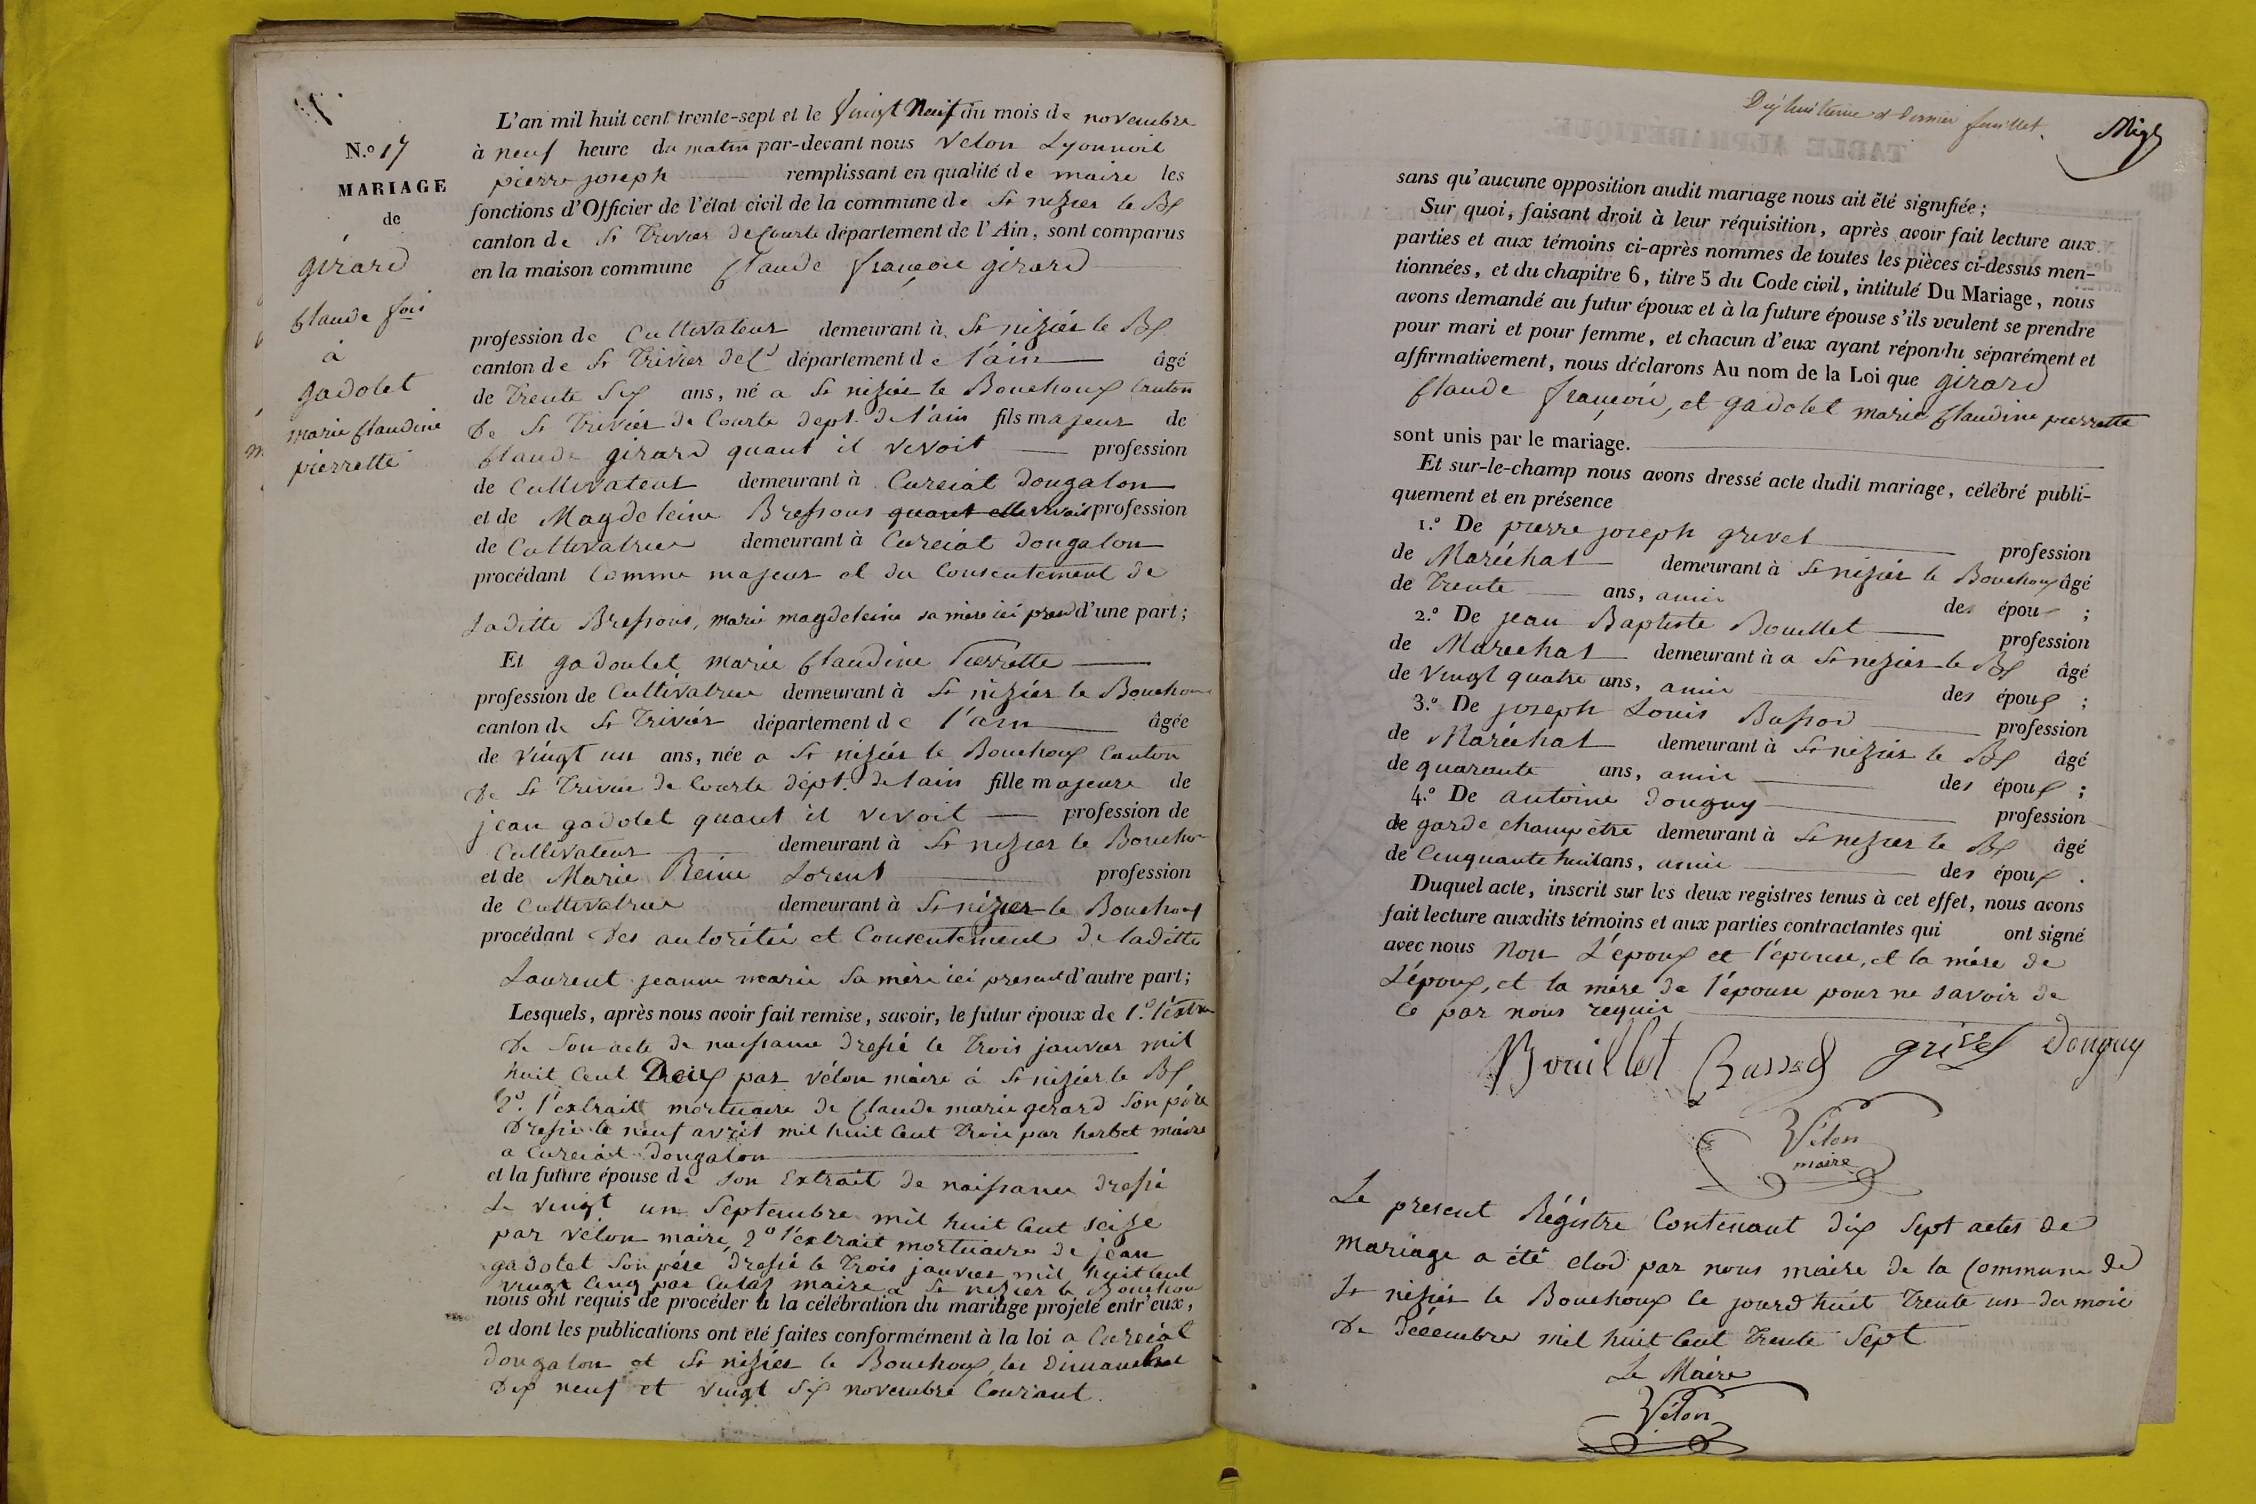 N.o 17
MARIAGE
de
girard
Claude fois
à
gadolet
marie Claudine
pierrette
L'an mil huit cent trente-sept et le Vingt Neuf du mois de novembre
à neuf heure du matin par-devant nous Velon Lyonnois
pierre joseph remplissant en qualité de maire les
fonctions d'Officier de l'état civil de la commune de St nizier le Bx
canton de St Trivier de Courte département de l'Ain, sont comparus
en la maison commune Claude françois girard
profession de Cultivateur demeurant à St niziér le Bx
canton de St Trivier de C département de l'ain âgé
de Trente Six ans, né a St niziér le Bouchoux Canton
De St Triviér de Courte dept. de l'ain fils majeur de
Claude girard quant il vivoit profession
de Cultivateur demeurant à Curciat dongalon
et de Magdeleine Bressoux quant elle vivoit profession
de Cultivatrice demeurant à Curciat dongalon
procédant Comme majeur et du Consentement de
Laditte Bressoux, marie magdeleine sa mère ici présent d'une part;
Et gadoulet marie Claudine Pierrette
profession de Cultivatrice demeurant à St niziér le Bouchoux
canton de St Triviér département de l'ain âgée
de vingt un ans, née a St niziér le Bouchoux Canton
De St Trivier de Courte dépt. de lain fille majeure de
jean gadolet quant il vivoit profession de
Cultivateur demeurant à St nizier le Bouchoux
et de Marie Reine Lorent profession
de Cultivatrice demeurant à St nizier le Bouchoux
procédant des autorités et Consentement de laditte
Laurent jeanne marie sa mère ici present d'autre part;
Lesquels, après nous avoir fait remise, savoir, le futur époux de 1.o l'extrait
De Son acte de naissance dressé le Trois janvier mil
huit Cent Deux par vélon maire á St niziér le Bx
2o. l'extrait mortuaire de Claude marie gerard Son pére
Dressé le neuf avril mil huit Cent Trois par herbet maire
a Curciat dongalon
et la future épouse de Son Extrait de naissance dressé
Le vingt un Septembre mil huit Cent seize
par vélon maire 2o l'extrait mortuaire de jean
gadolet Son pére dressé le Trois janvier mil huit Cent
vingt Cinq par maire a St nizier le Bouchoux
nous ont requis de procéder à la célébration du mariage projeté entr'eux,
et dont les publications ont été faites conformément à la loi a Curciat
dongalon et St niziér le Bouchoux les dimanches
Dix neuf et vingt Six novembre Courant.
Dixhuitieme et dernier feuillet.
sans qu'aucune opposition audit mariage nous ait été signifiée;
Sur quoi, faisant droit à leur réquisition, après avoir fait lecture aux
parties et aux témoins ci-après nommés de toutes les pièces ci-dessus men-
tionnées, et du chapitre 6, titre 5 du Code civil, intitulé Du Mariage, nous
avons demandé au futur époux et à la future épouse s'ils veulent se prendre
pour mari et pour femme, et chacun d'eux ayant répondu séparément et
affirmativement, nous déclarons Au nom de la Loi que girard
Claude françois, et gadolet marie Claudine pierrette
sont unis par le mariage.
Et sur-le-champ nous avons dressé acte dudit mariage, célébré publi-
quement et en présence
1.o De pierre joseph grivel profession
de Maréchal demeurant à St niziér le Bouchoux âgé
de Trente ans, amis des époux ;
2.o De jean Baptiste Bouillet profession
de Marechal demeurant à a St nizier le Bx âgé
de vingt quatre ans, amis des époux ;
3.o De joseph Louis Bassod profession
de Maréchal demeurant à St nizier le Bx âgé
de quarante ans, amis des époux ;
4.o De antoine douguy profession
de garde champêtre demeurant à St nizier le Bx âgé
de Cinquante huit ans, amis des époux .
Duquel acte, inscrit sur les deux registres tenus à cet effet, nous avons
fait lecture auxdits témoins et aux parties contractantes qui ont signé
avec nous Non L'époux et l'épouse, et la mére de
L'époux, et la mére de l'épouse pour ne savoir de
Ce par nous requis
Bouillet Bassod grivel Douguy
Vélon
maire
Le present Régistre Contenant dix Sept actes de
mariage a été clod par nous maire de la Commune de
St niziér le Bouchoux Ce jourd huit Trente un du mois
De décembre mil huit Cent Trente Sept
Le Maire
Vélon